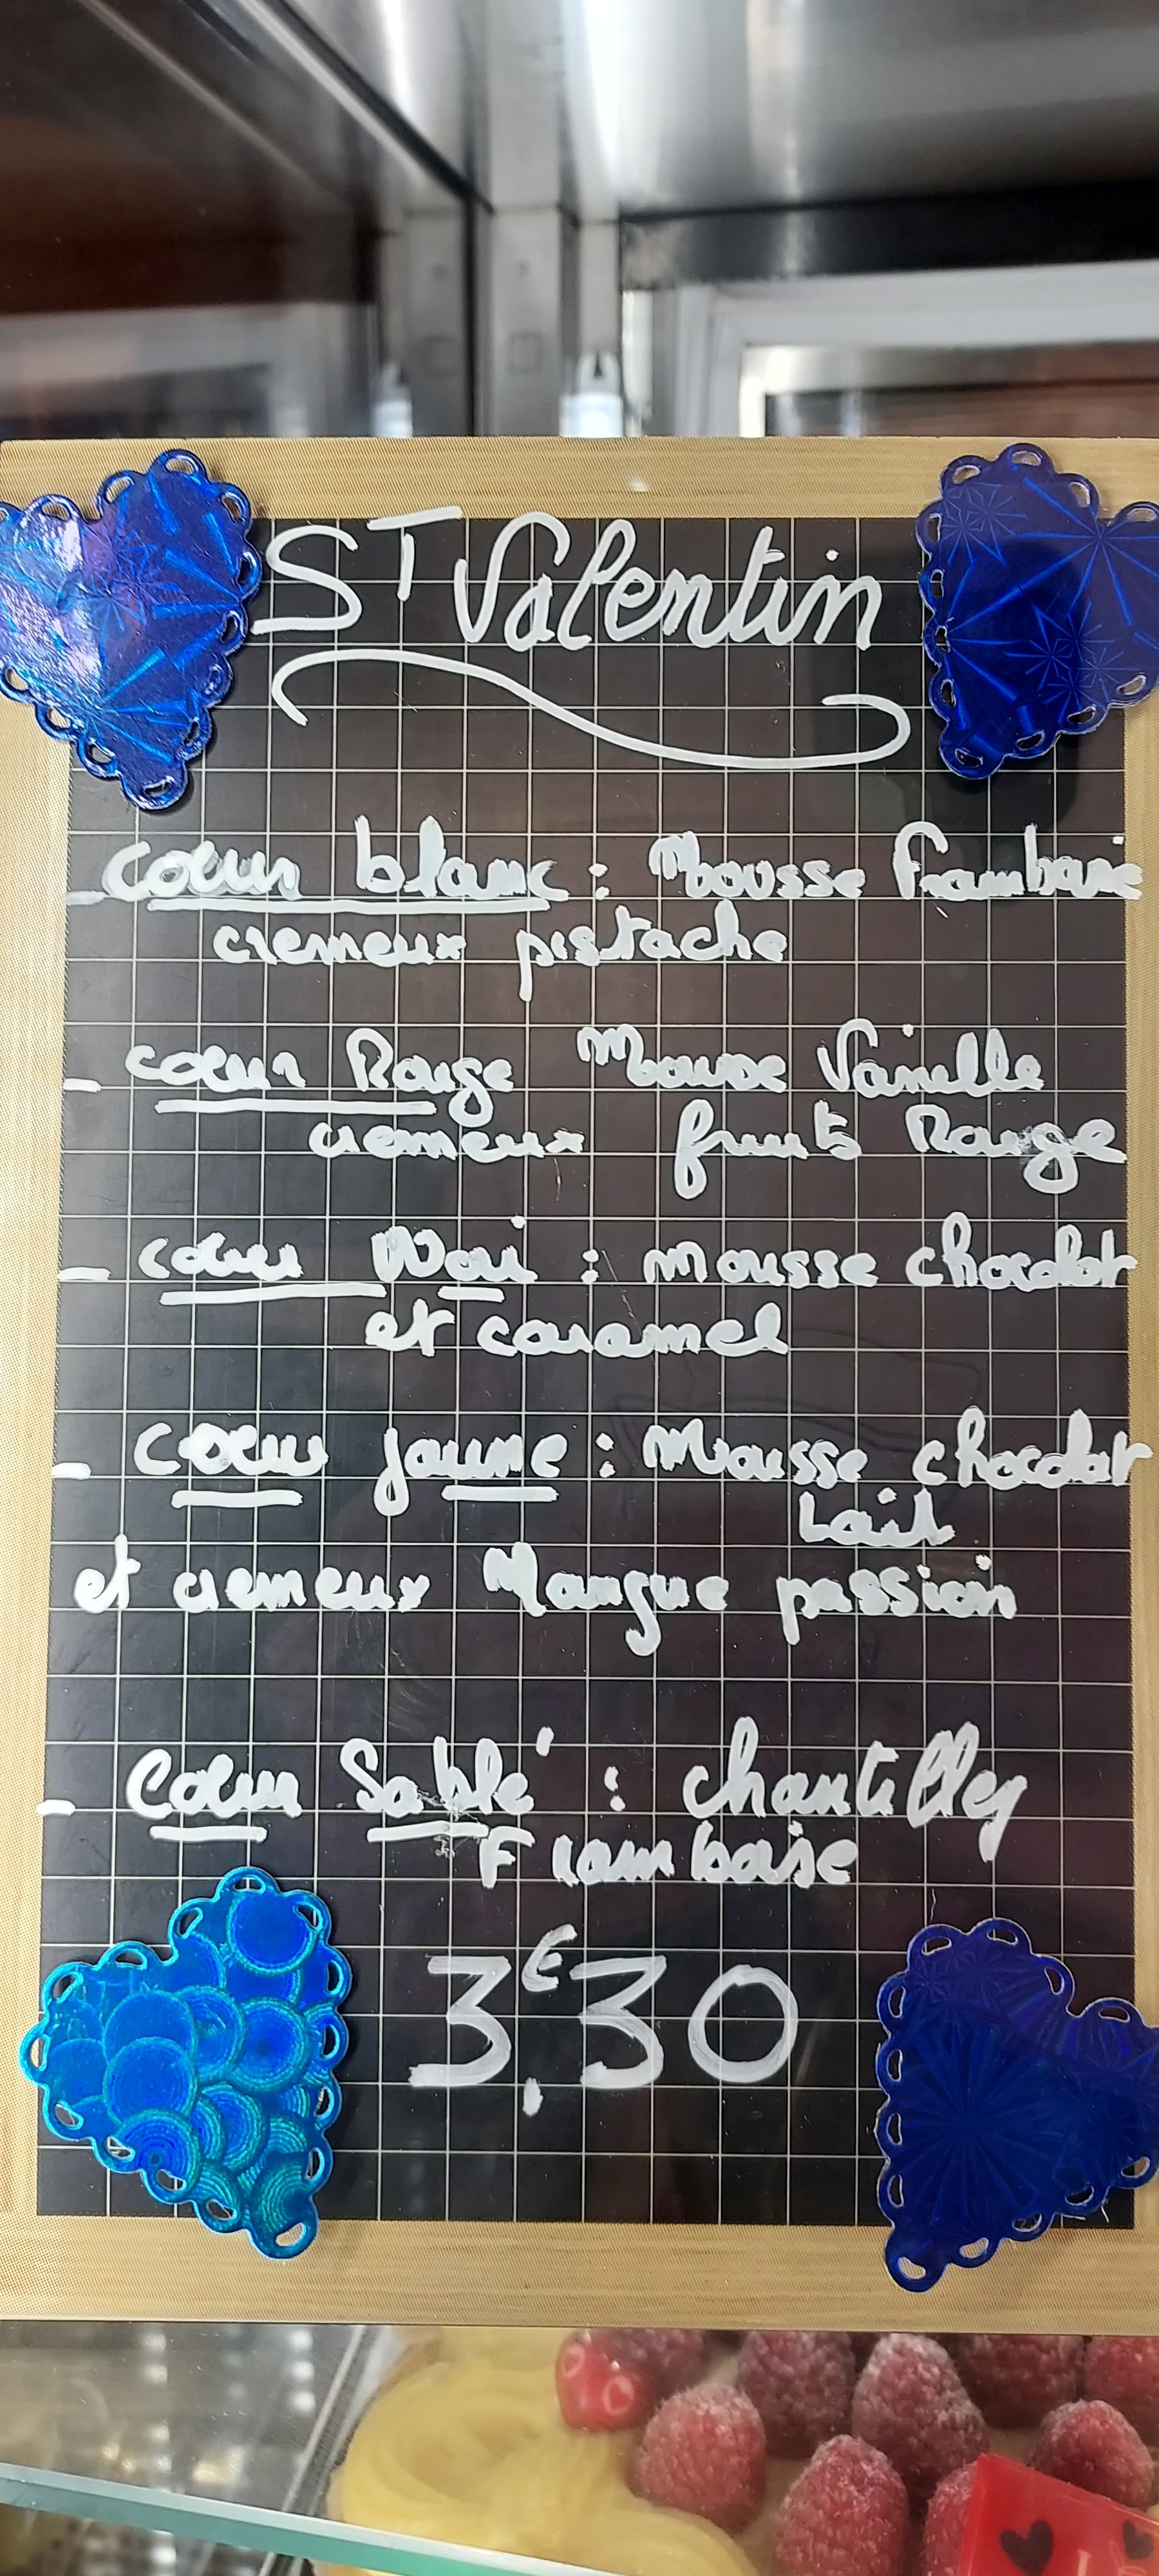 ST Valentin
- coeur blanc : Mousse Framboise
cremeux pistache
- coeur Rouge Mousse Vanille
cremeux fruits Rouge
- coeur Noir : mousse chocolat
et caramel
- coeur jaune : Mousse chocolat
Lait
et cremeux Mangue passion
- Coeur Sablé : chantilley
Framboise
3,€30